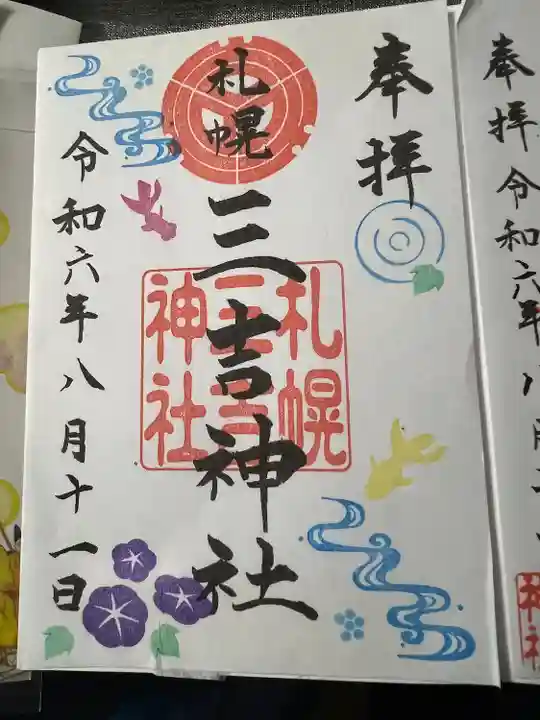 奉拝
札幌
三吉神社
札幌
三吉
神社
令和六年八月十一日
奉拝
令和六年八月
神社